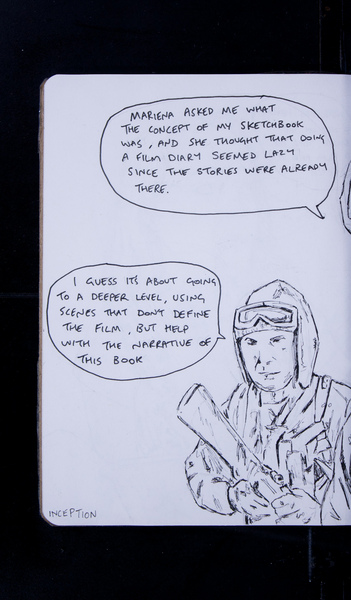 MARIENA ASKED ME WHAT
THE CONCEPT OF MY SKETCHBOOK
WAS, AND SHE THOUGHT THAT DOING
A FILM DIARY SEEMED LAZY
SINCE THE STORIES WERE ALREADY
THERE.
I GUESS ITS ABOUT GOING
TO A DEEPER LEVEL, USING
SCENES THAT DON'T DEFINE
THE FILM, BUT HELP
WITH THE NARRATIVE OF
THIS BOOK
INCEPTION